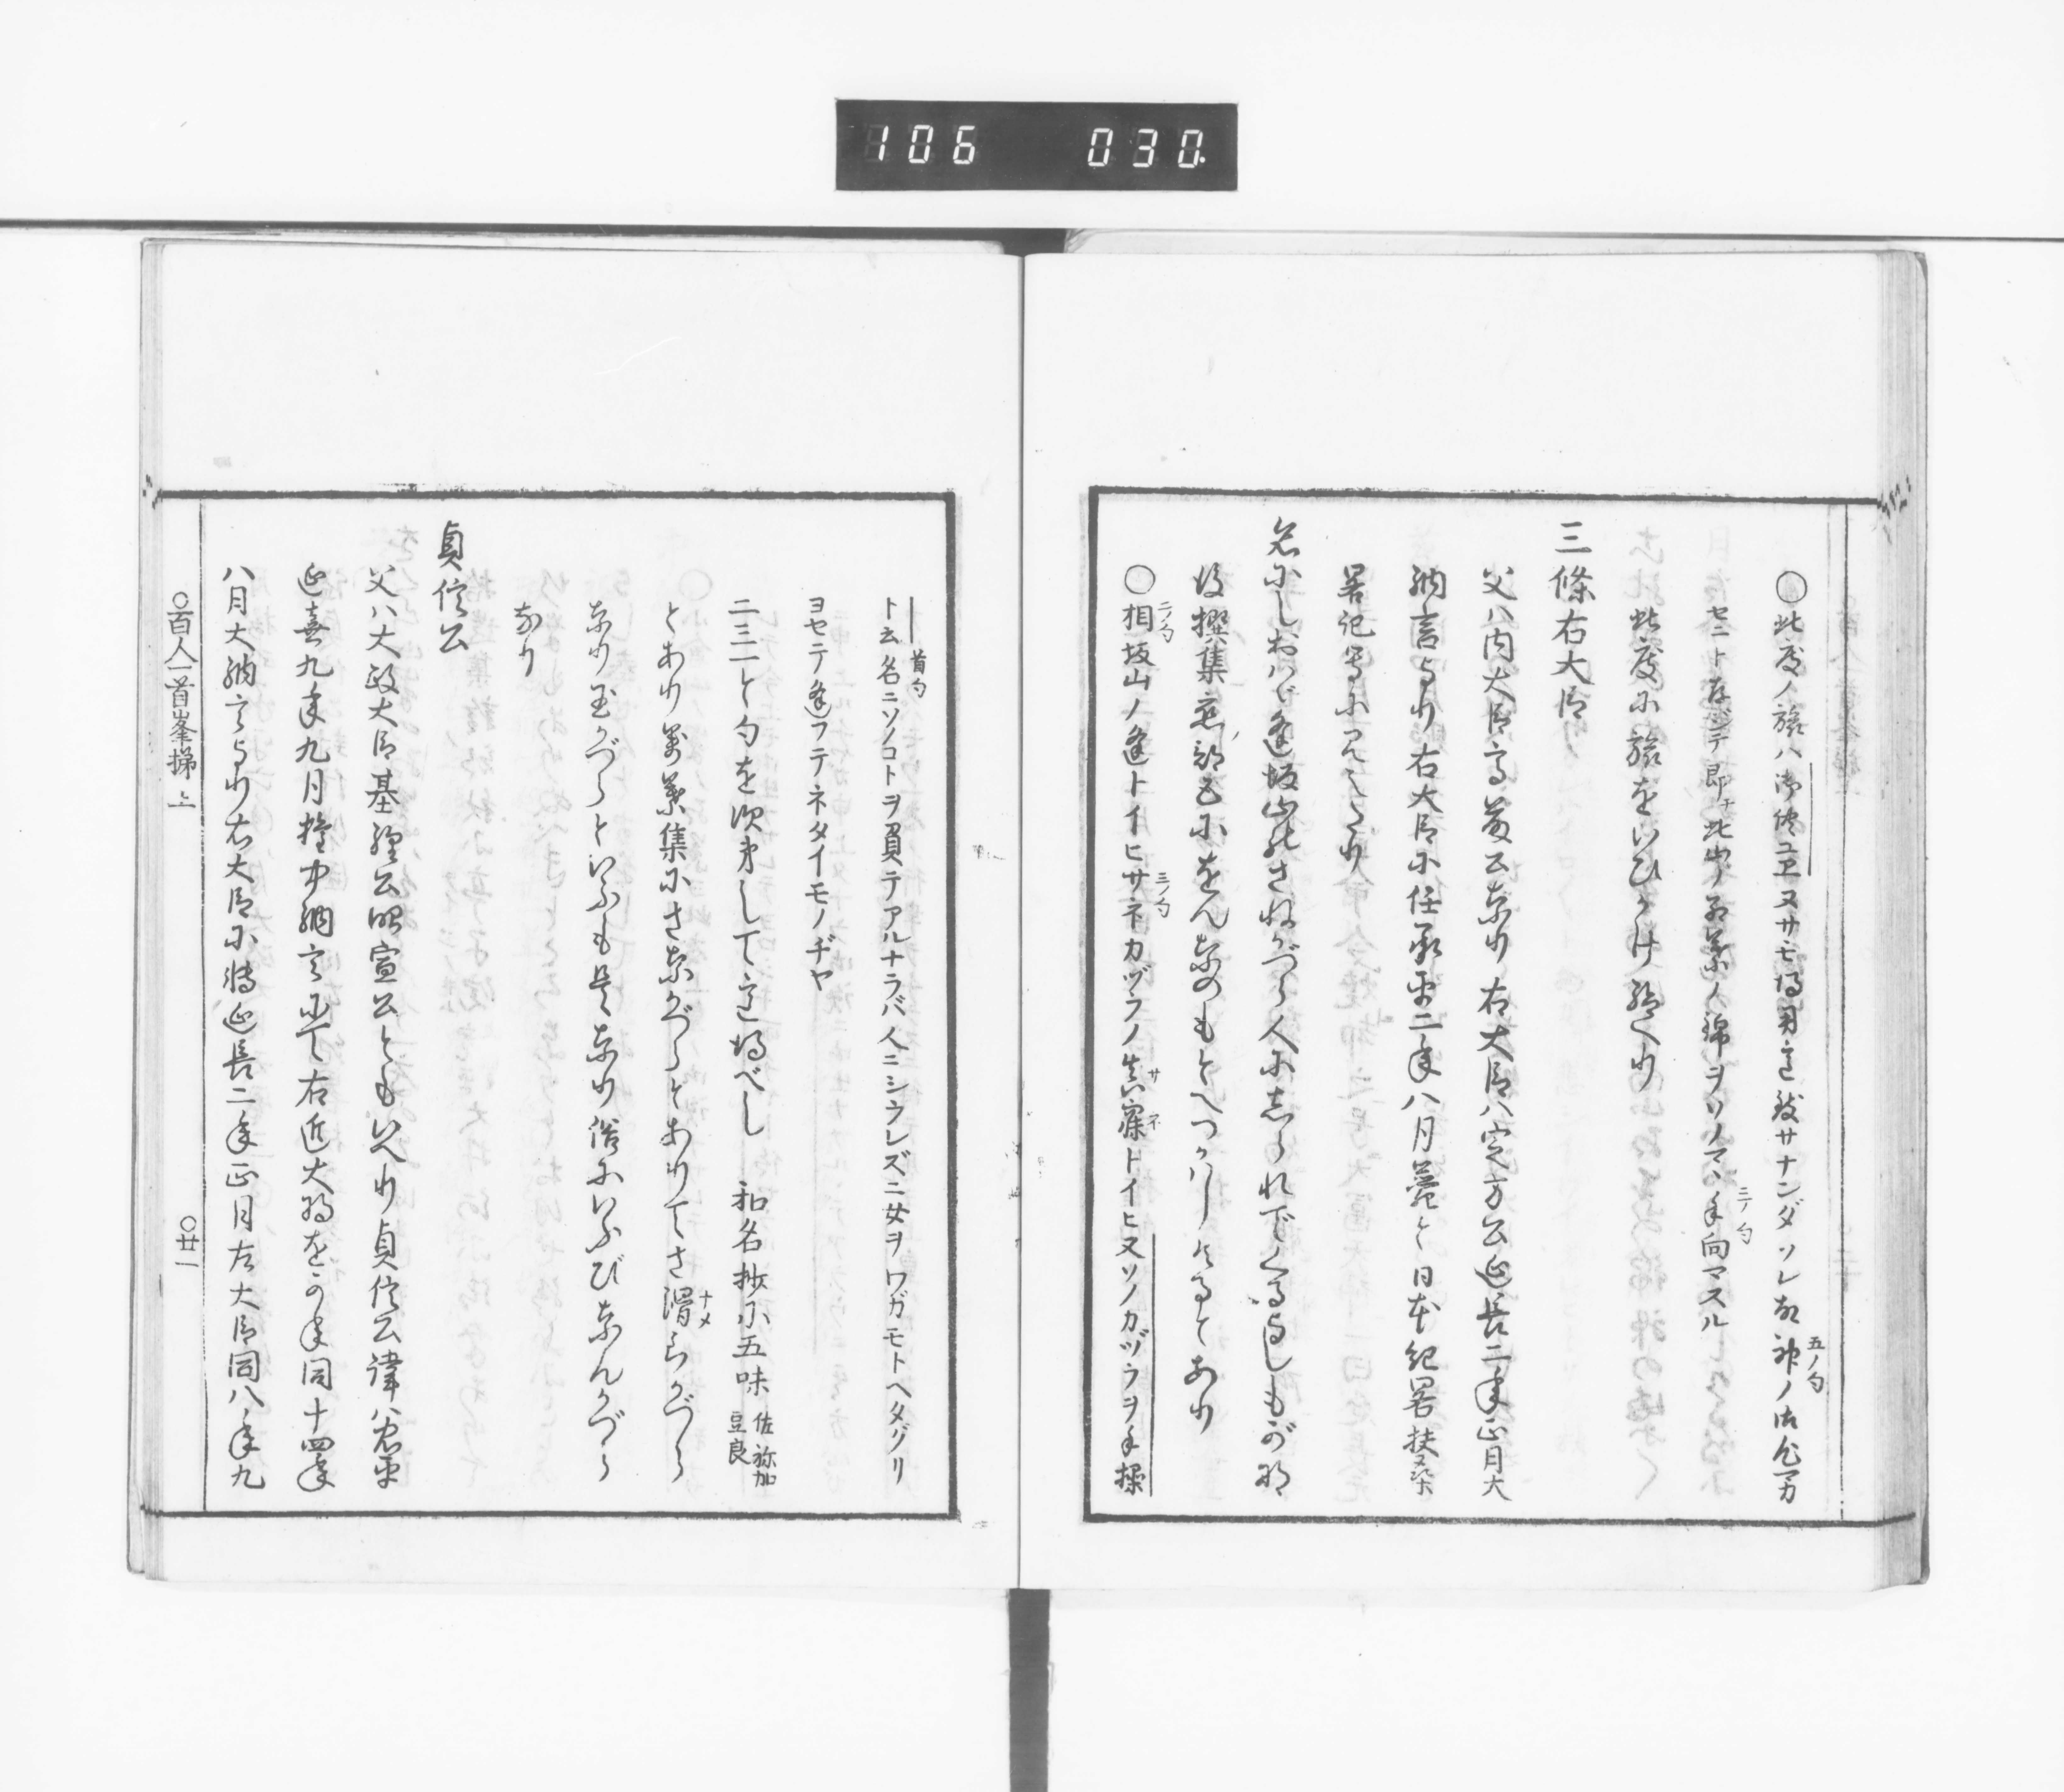 106 030
○此度ノ旅ハ御供ユヱ又サモ得用意致サナンダソレ故神ノ御心万
五ノ句
セニト存ジテ即チ此山ノ紅葉ノ錦ヲソノマヽ手向マスル
三ノ句
此度に旅をいひかけ給へり
三條右大臣
父ハ内大臣高藤公なり右大臣ハ定方公延長二年正月大
納言より右大臣に任承平二年八月薨と日本紀畧扶桑
畧記等に見えたり
名にしおはゞ逢坂山のさねかづら人にしられでくるよしもがな
後撰集恋ノ部五にをんなのもとへつかはしけるとあり
○相坂山ノ逢トイヒサネカヅラノ真寐トイヒ又ソノカヅラヲ手操
二ノ句 三ノ句 サネ
ト云名ニソノコトヲ負テアルナラバ人ニシラレズニ女ヲワガモトヘタグリ
首句
ヨセテ逢フテネタイモノヂヤ
二三一と句を次第して意得べし 和名抄に五味 佐祢加豆良
とあり萬葉集にさなかづらとありてさ滑らかづら
ナメ
なり玉かづらといふも是なり俗にいふびなんかづら
なり
貞信公
父ハ大政大臣基經公昭宣公ともいへり貞信公諱ハ忠平
延喜九年九月権中納言にて右近大将をかね同十四年
八月大納言より右大臣に轉延長二年正月左大臣同八年九
○百人一首峯梯 上
○廿一